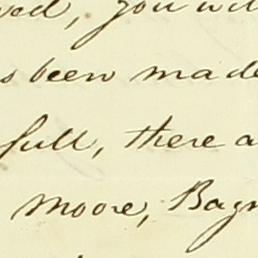 ved, you wil
s been made
full, there a
Moore, Bagn